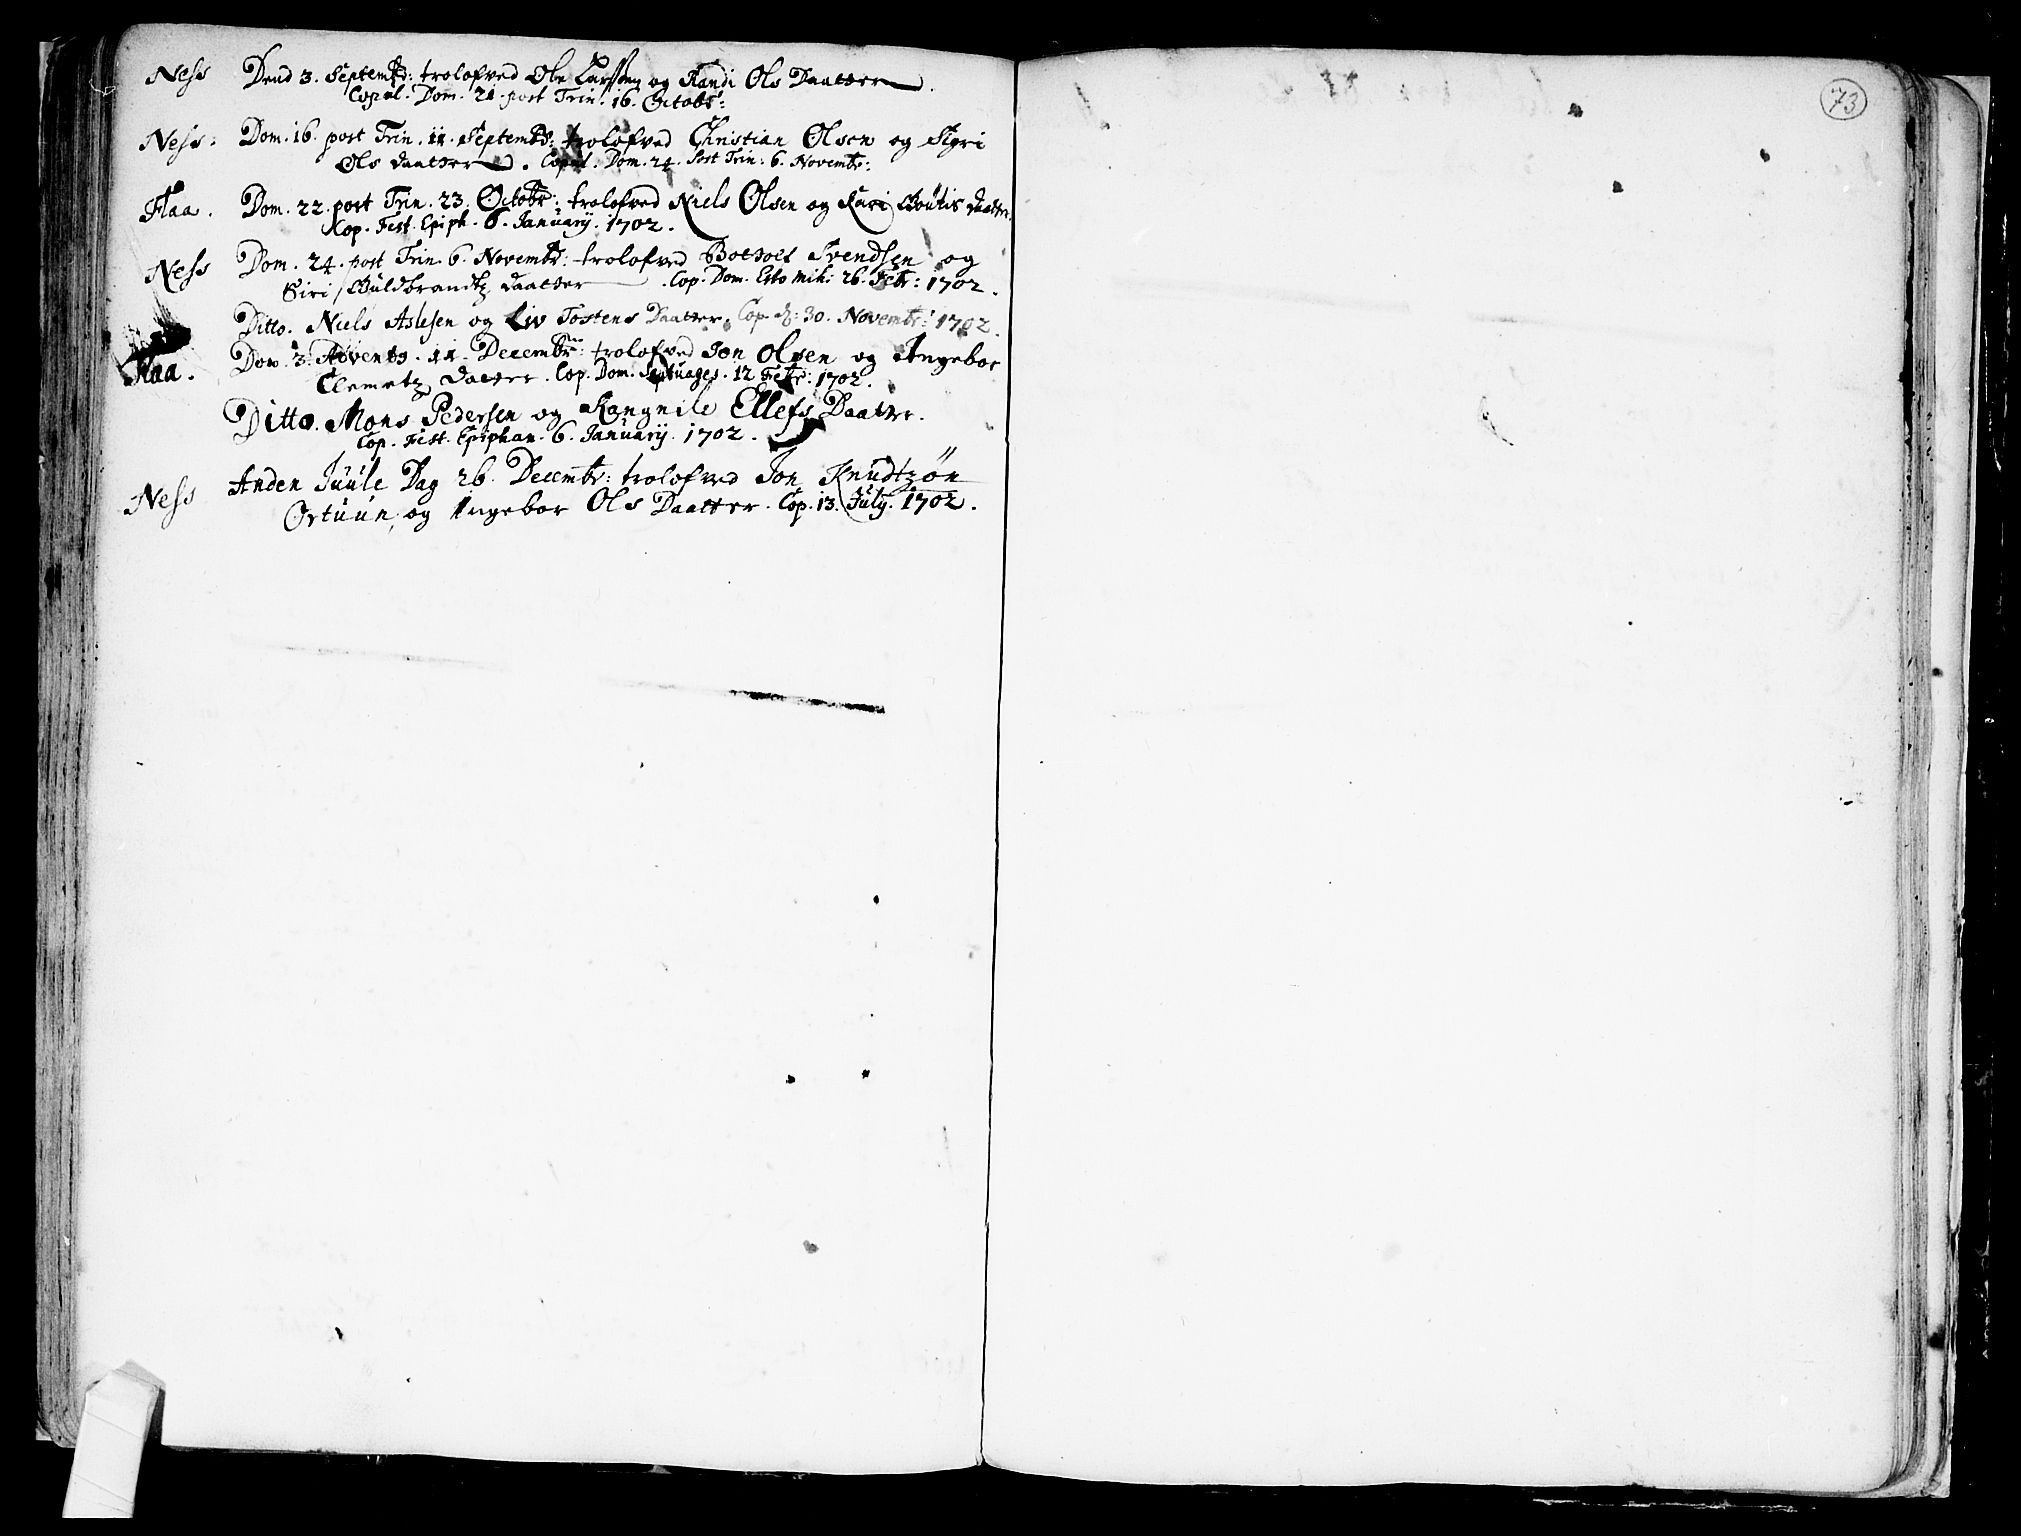 Ness Dend 3. Septembr: trolofved Ole Larssen og Randi Ols Daatter.
Copul. Dom. 21. post Trin. 16. Octobr:
Ness. Dom. 16. post Trin. 11. Septembr: trolofved Christian Olsen og Sigri
Ols daatter. Copul. Dom. 24. Post Trin: 6. Novembr:
Flaa. Dom. 22. post Trin. 23. Octobr: trolofved Niels Olsen og Kari daatter.
Cop. Fest. Epiph. 6. Januarij. 1702.
Ness Dom. 24. post Trin. 6. Novembr: trolofved Botholf Svendsen og
Siri Guldbrandtz daatter. Cop. Dom. Esto mihi 26. Febr: 1702.
Ditto. Niels Aslesen og Liv Tostens Daatter. Cop. d: 30. Novembr: 1702.
Flaa. Dom. 3. Advents. 11. Decembr: trolofved Jon Olsen og Ingebor
Clemetz daatter. Cop. Dom. Septuages. 12 Febr: 1702.
Ditto. Mons Pedersen og Rangnile Ellefs Daatter.
Cop. Fest. Epiphan. 6. Januarij. 1702.
Ness Anden Juule Dag 26. Decembr: trolofved Jon Knudtzøn
Ortuun, og Ingebor Ols Daatter. Cop. 13. July. 1702.
73